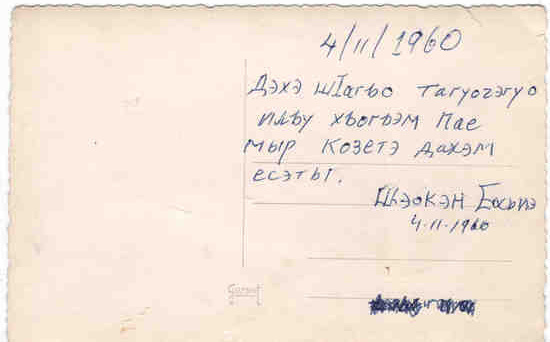 4/11/1960
Дэхэ шIагъо тагуочэгуо
илъу хъогъэм пае
мыр козетэ дахэм
есэты.
Шэокэн
4-11-1960